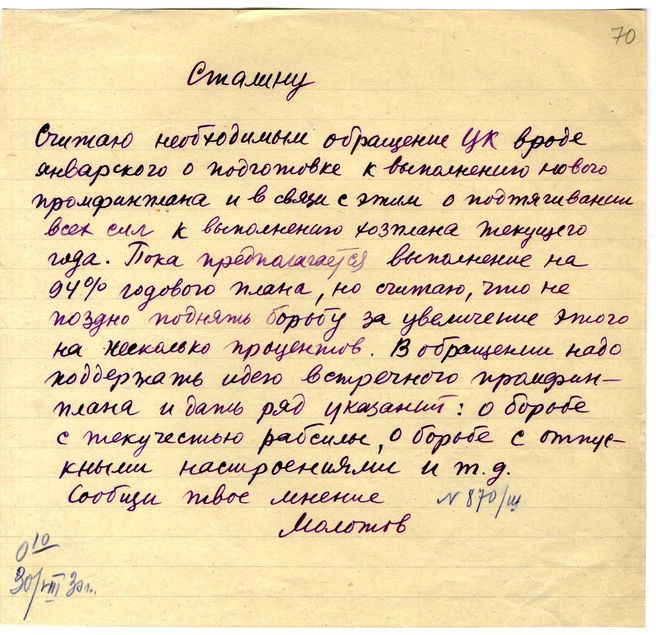 70
Сталину
Считаю необходимым обращение ЦК вроде
январского о подготовке к выполнению нового
промфинплана и в связи с этим о подтягивании
всех сил к выполнению хозплана текущего
года. Пока предполагается выполнение на
94% годового плана, но считаю, что не
поздно поднять борьбу за увеличение этого
на несколько процентов. В обращении надо
поддержать идею встречного промфин-
плана и дать ряд указаний: о борьбе
с текучестью рабсилы, о борьбе с отпус-
кными настроениями и т.д.
Сообщи твое мнение N 870/ш
Молотов
0 10
30/VIII 30г.